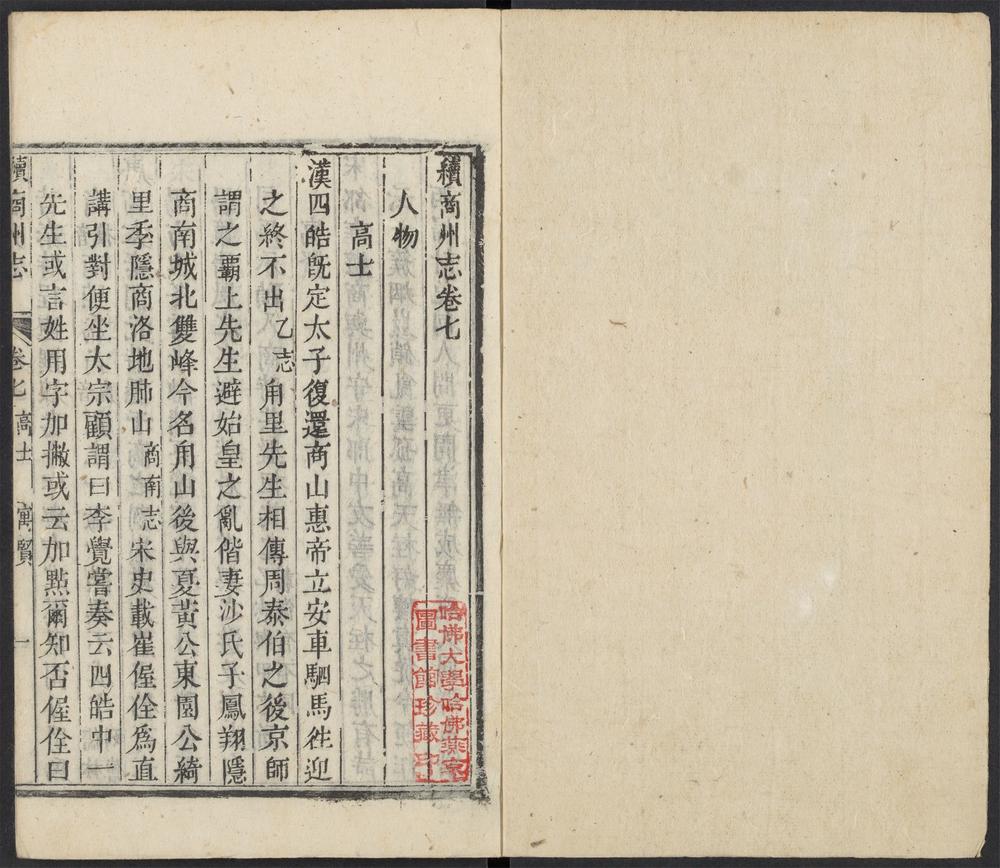 續商州志卷七
人物
高士
漢四皓旣定太子復還商山惠帝立安車駟馬徃迎
之終不出乙志角里先生相傳周泰伯之後京師
謂之覇上先生避始皇之亂偕妻沙氏子鳳翔隱
商南城北雙峰今名角山後與夏黃公東園公綺
里季隱商洛地肺山商南志宋史載崔偓佺爲直
講引對便坐太宗顧謂曰李覺嘗奏云四皓中一
先生或言姓用字加撇或云加㸃爾知否偓佺曰
續商州志
卷七高士 寓賢
一
哈佛大學哈佛燕京
圖書館珍藏印